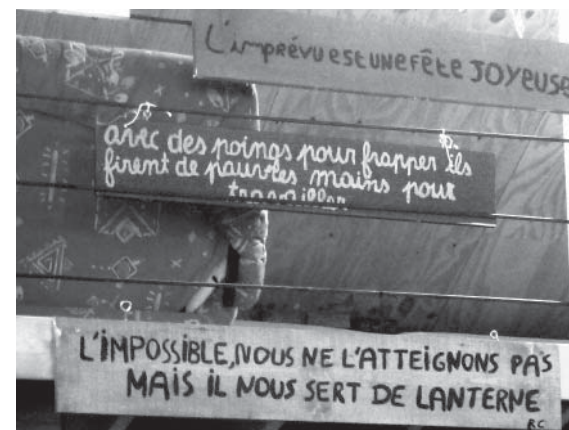 L'imprévu est une fête JOYEUSE
avec des poings pour frapper ils
firent de pauvres mains pour
travailler
L'IMPOSSIBLE, NOUS NE L'ATTEIGNONS PAS
MAIS IL NOUS SERT DE LANTERNE
R.C.